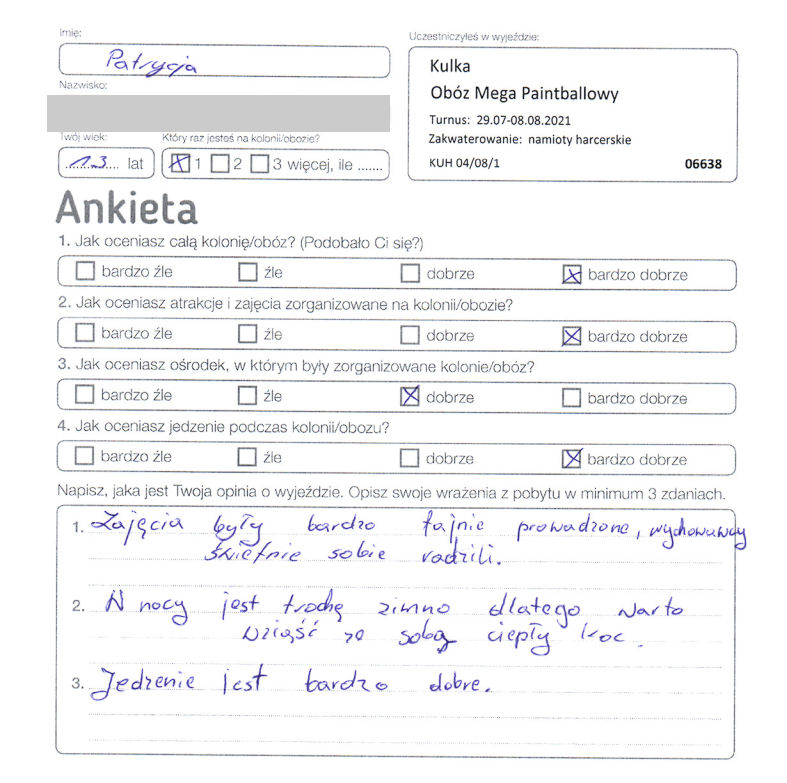 Imię:
Patrycja
Nazwisko:
Twój wiek:
13 lat
Który raz jesteś na kolonii/obozie?
1 2 3 więcej, ile .......
Uczestniczyłeś w wyjeździe:
Kulka
Obóz Mega Paintballowy
Turnus: 29.07-08.08.2021
Zakwaterowanie: namioty harcerskie
KUH 04/08/1 06638
Ankieta
1. Jak oceniasz całą kolonię/obóz? (Podobało Ci się?)
bardzo źle źle dobrze bardzo dobrze
2. Jak oceniasz atrakcje i zajęcia zorganizowane na kolonii/obozie?
bardzo źle źle dobrze bardzo dobrze
3. Jak oceniasz ośrodek, w którym były zorganizowane kolonie/obóz?
bardzo źle źle dobrze bardzo dobrze
4. Jak oceniasz jedzenie podczas kolonii/obozu?
bardzo źle źle dobrze bardzo dobrze
Napisz, jaka jest Twoja opinia o wyjeździe. Opisz swoje wrażenia z pobytu w minimum 3 zdaniach.
1. Zajęcia były bardzo fajnie prowadzone, wychowawcy
świetnie sobie radzili.
2. W nocy jest trochę zimno dlatego warto
wziąść ze sobą ciepły koc.
3. Jedzenie jest bardzo dobre.